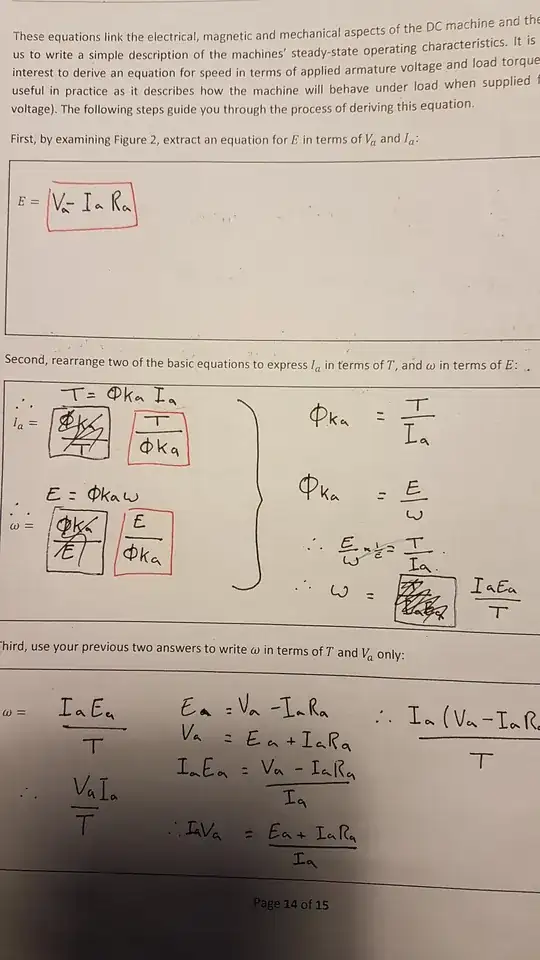 These equations link the electrical, magnetic and mechanical aspects of the DC machine and the
us to write a simple description of the machines' steady-state operating characteristics. It is
interest to derive an equation for speed in terms of applied armature voltage and load torque
useful in practice as it describes how the machine will behave under load when supplied f
voltage). The following steps guide you through the process of deriving this equation.
First, by examining Figure 2, extract an equation for E in terms of Vₐ and Iₐ:
E = Vₐ - Iₐ Rₐ
Second, rearrange two of the basic equations to express Iₐ in terms of T, and ω in terms of E:
∴ T = Φkₐ Iₐ
Iₐ = T / Φkₐ
∴ E = Φkₐω
ω = E / Φkₐ
Φkₐ = T / Iₐ
Φkₐ = E / ω
∴ E / ω × 1/E = T / Iₐ.
∴ ω = IₐEₐ / T
Third, use your previous two answers to write ω in terms of T and Vₐ only:
ω = IₐEₐ / T
∴ VₐIₐ / T
Eₐ = Vₐ - IₐRₐ
Vₐ = Eₐ + IₐRₐ
IₐEₐ = Vₐ - IₐRₐ / Iₐ
∴ IₐVₐ = Eₐ + IₐRₐ / Iₐ
∴ Iₐ (Vₐ - IₐR / T
Page 14 of 15